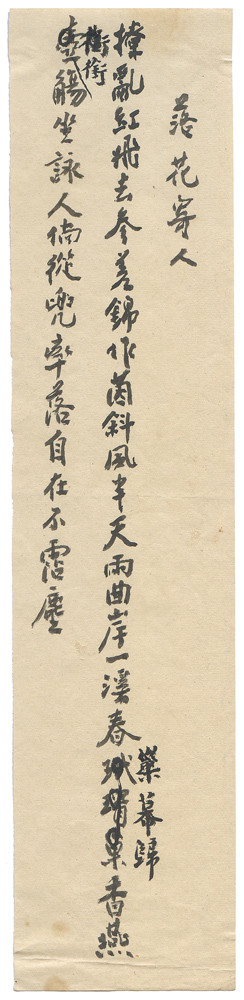 落花寄人
撩亂紅飛去參差錦作茵斜風半天雨曲岸一溪春玳瑁巢香燕
巢幕歸
銜
觴坐詠人倘從兜率落自在不霑塵